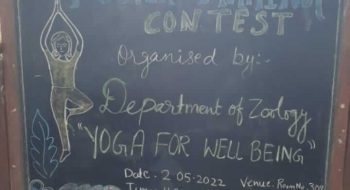 CONTEST
Organised by:-
Department of Zoology
"YOGA FOR WELL BEING"
Date: 2 05.2022 Venue: Room No